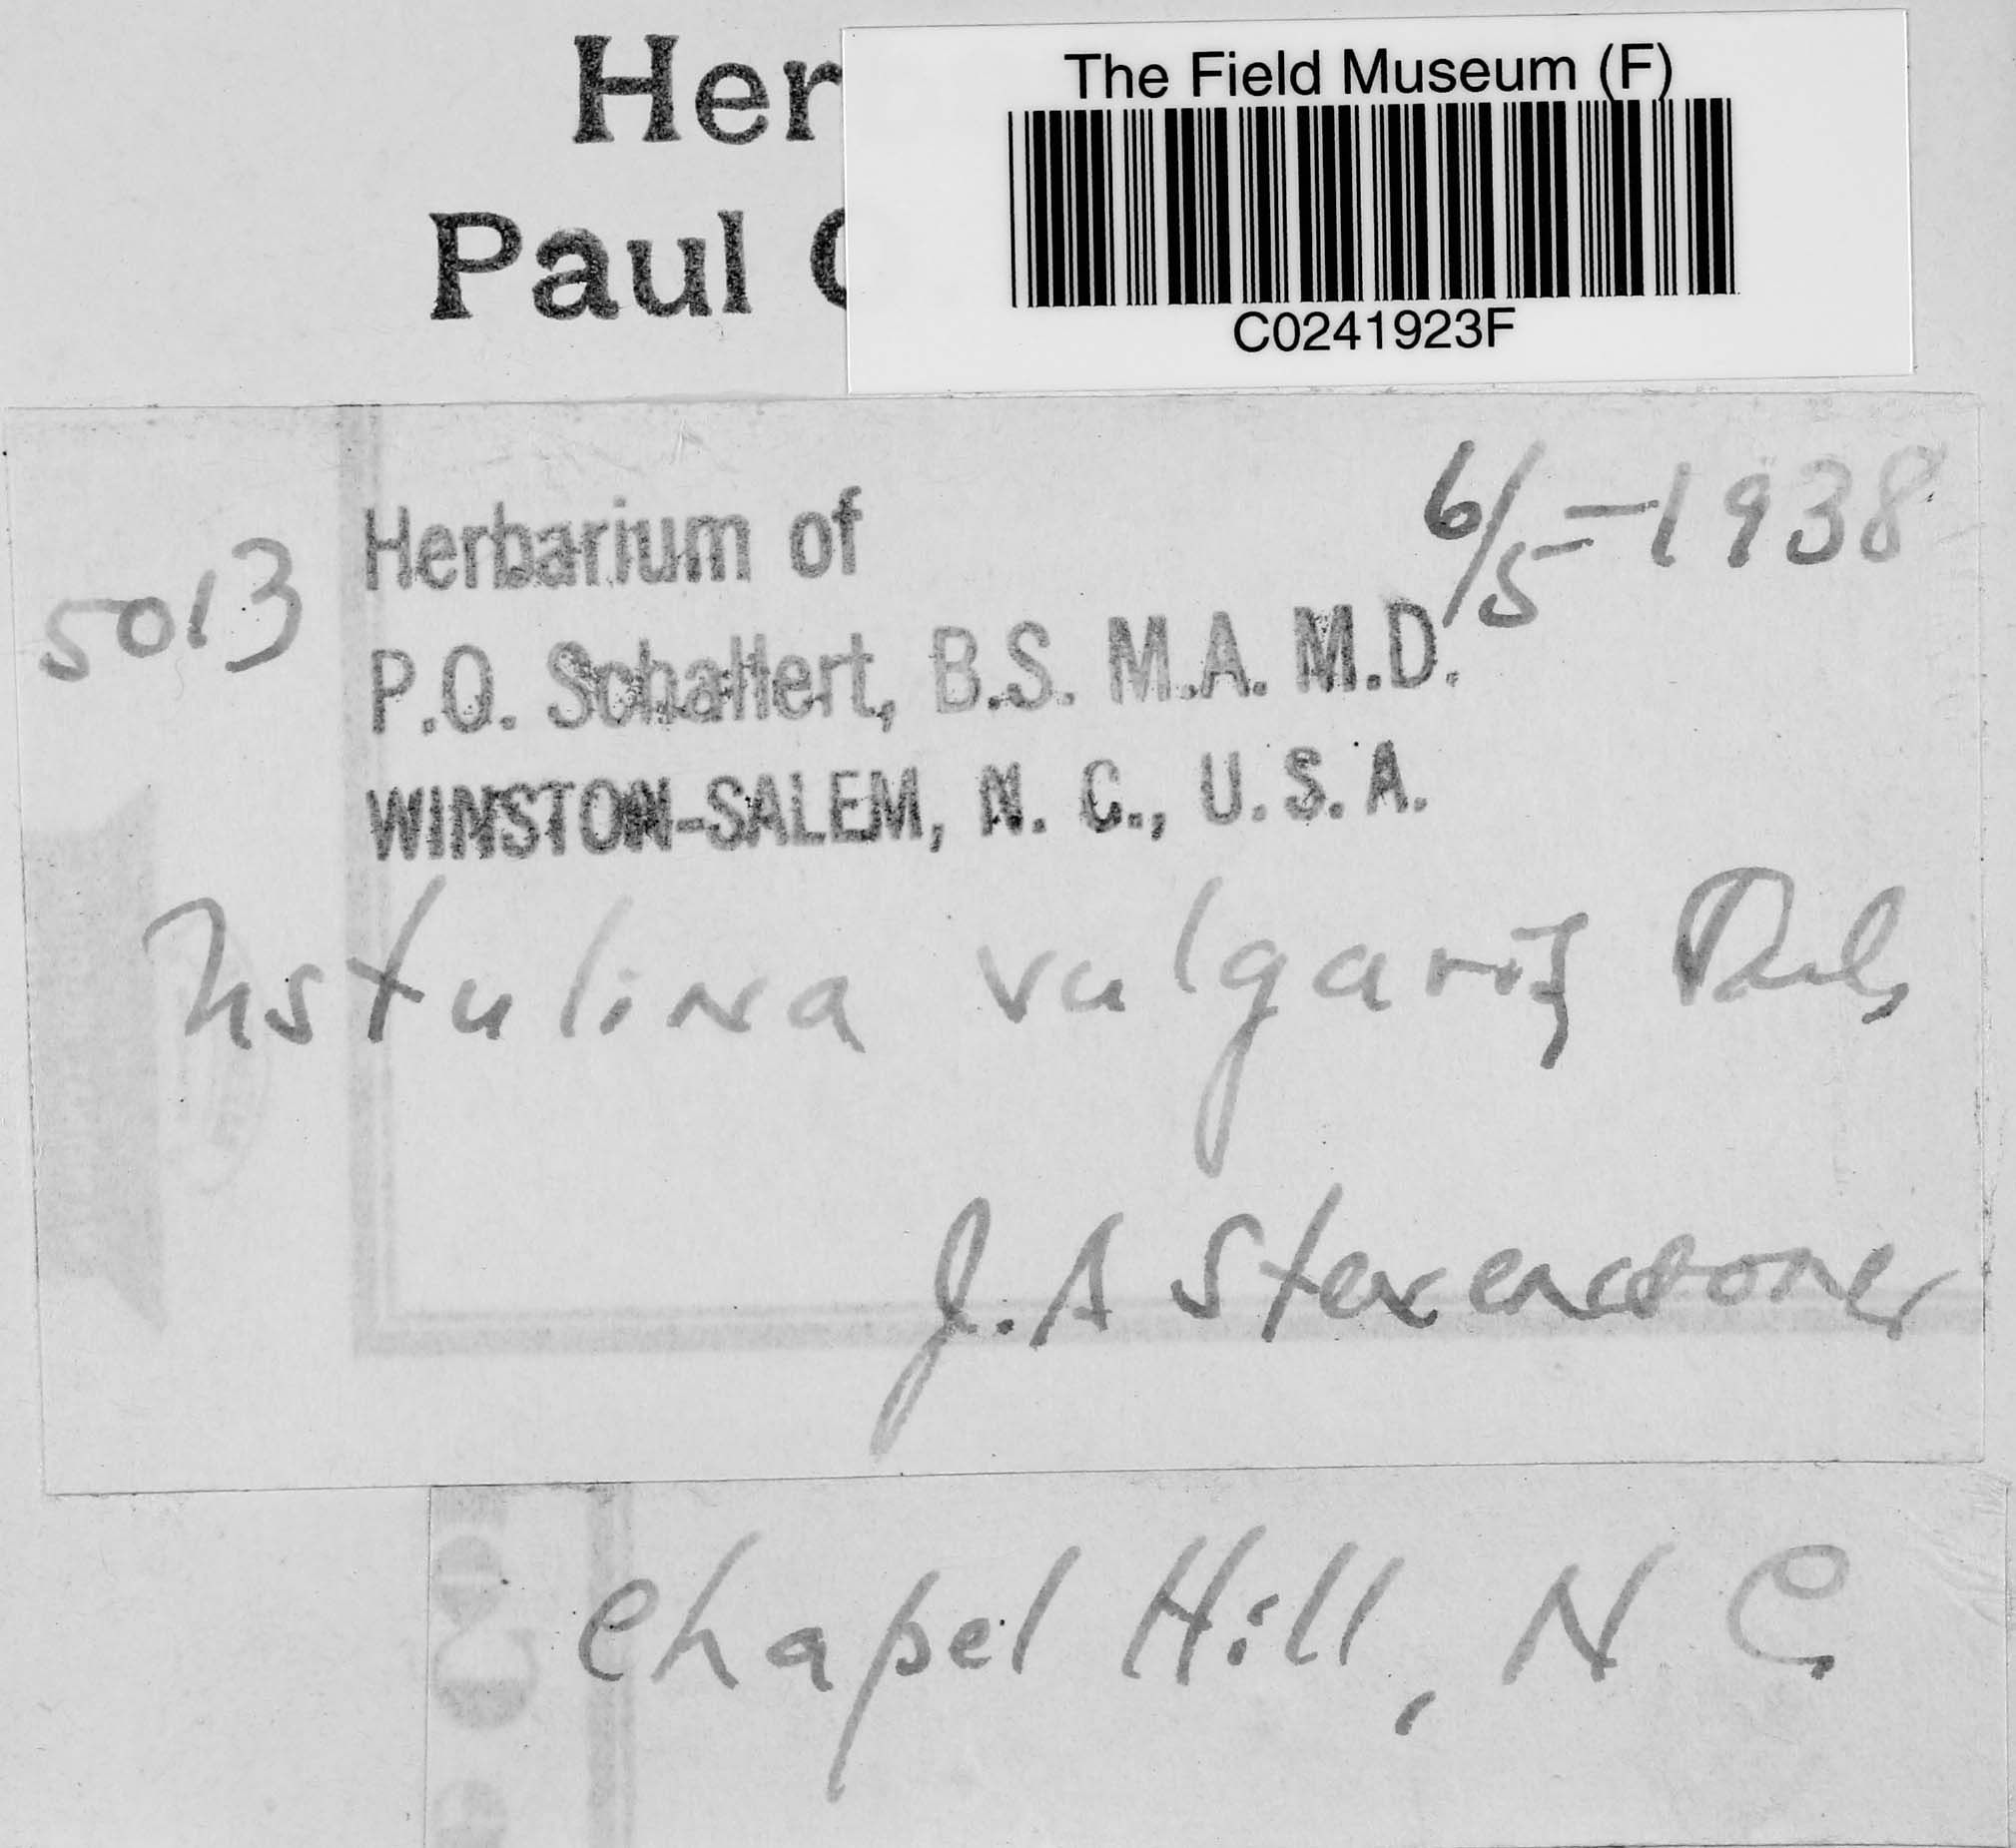 Her
The Field Museum (F)
Paul
C0241923F
6/5 = 1938
5013
Herbarium of
P.O. Schallert, B.S. M.A. M.D.
WINSTON-SALEM, N. C., U. S. A.
Ustulina vulgaris Tul,
J. A Stevenson
Chapel Hill, N C